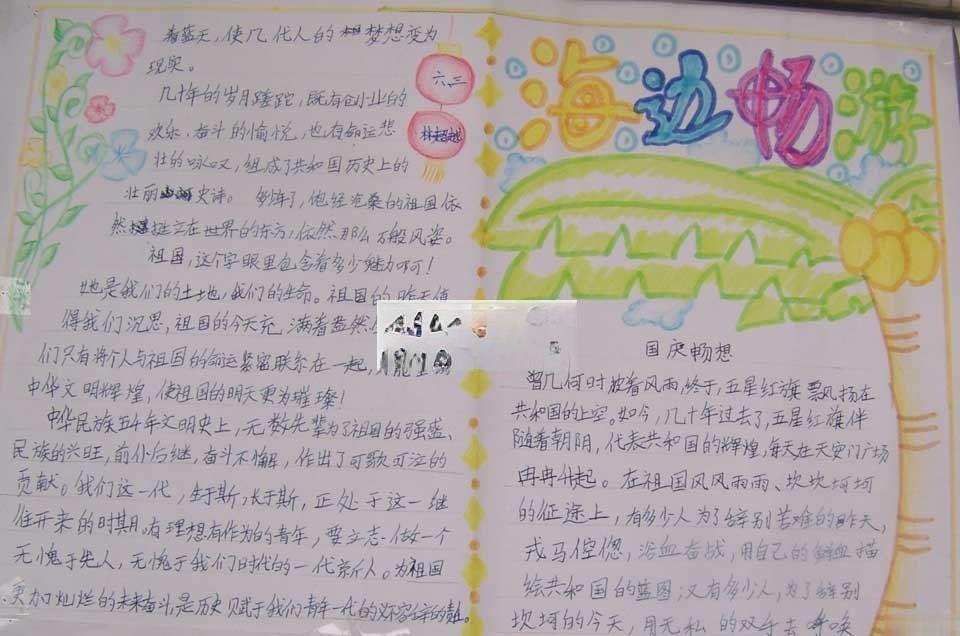 海边畅游
国庆畅想
曾几何时披着风雨,终于,五星红旗飘扬在
共和国的上空。如今,几十年过去了,五星红旗伴
随着朝阴,代表共和国的辉煌,每天在天安门广场
冉冉升起。在祖国风风雨雨、坎坎坷坷
的征途上,有多少人为了辞别苦难的昨天,
戎马倥偬,浴血奋战,用自己的鲜血描
绘共和国的蓝图;又有多少人,为了辞别
坎坷的今天,用无私的双手去呼唤
着蓝天,使几代人的梦想变为
现实。
几十年的岁月蹉跎,既有创业的
欢乐,奋斗的愉悦,也有命运悲
壮的咏叹,组成了共和国历史上的
壮丽史诗。多年了,饱经沧桑的祖国依
然挺立在世界的东方,依然那么万般风姿。
祖国,这个字眼里包含着多少魅力啊!
她是我们的土地,我们的生命。祖国的昨天值
得我们沉思,祖国的今天充满着盎然
们只有将个人与祖国的命运紧密联系在一起,
中华文明辉煌,使祖国的明天更为璀璨!
中华民族五千年文明史上,无数先辈为了祖国的强盛、
民族的兴旺,前仆后继,奋斗不懈,作出了可歌可泣的
贡献。我们这一代,生于斯,长于斯,正处于这一继
往开来的时期。有理想有作为的青年,要立志做一个
无愧于先人,无愧于我们时代的一代新人。为祖国
更加灿烂的未来奋斗,是历史赋于我们青年一代的
六三